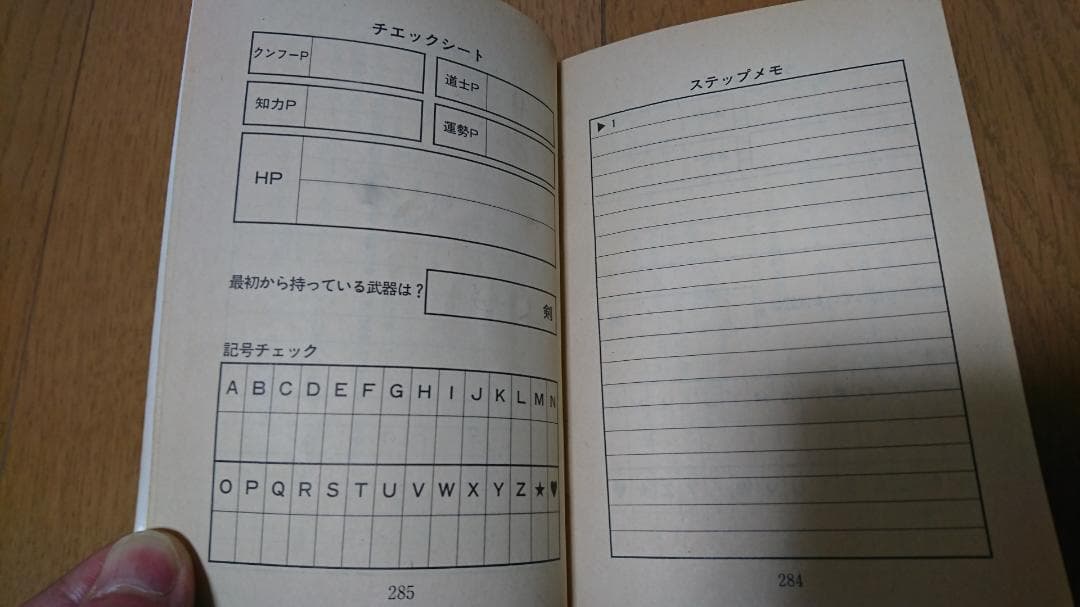 チェックシート
クンフーP
道士P
知力P
運勢P
HP
最初から持っている武器は?
剣
記号チェック
A B C D E F G H I J K L M N
O P Q R S T U V W X Y Z ★ ♥
285
ステップメモ
▶1
284